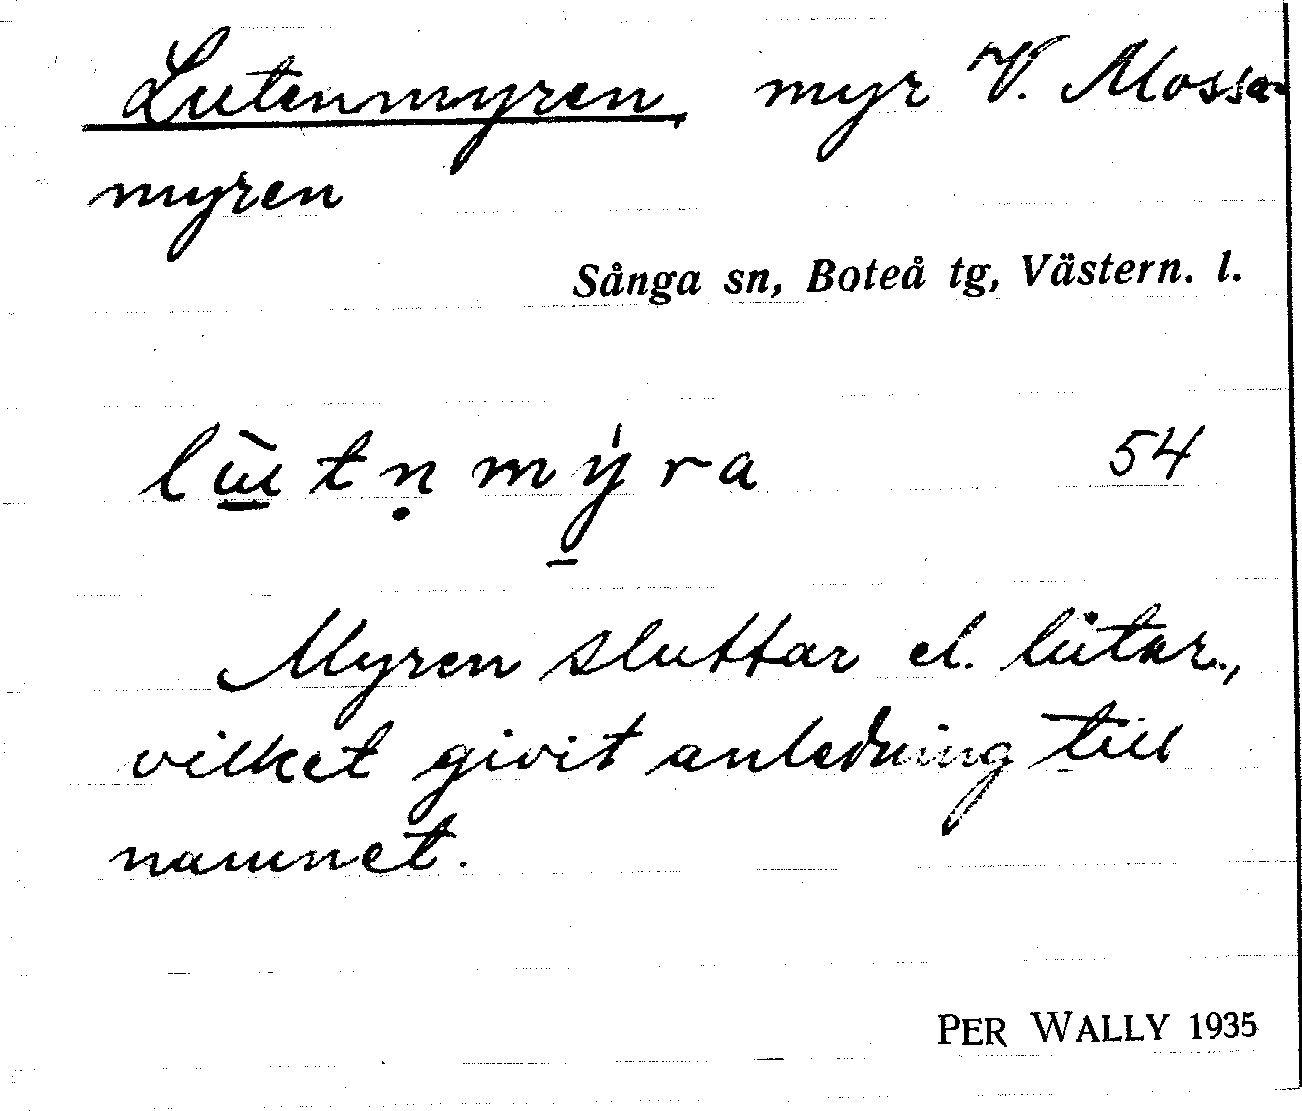 Lutenmyren, myr V. Mossa-
myren
Sånga sn, Boteå tg, Västern. l.
lɯ̱̀tṇmý̱ra 54
Myren sluttar el. lutar.,
vilket givit anledning till
namnet.
PER WALLY 1935